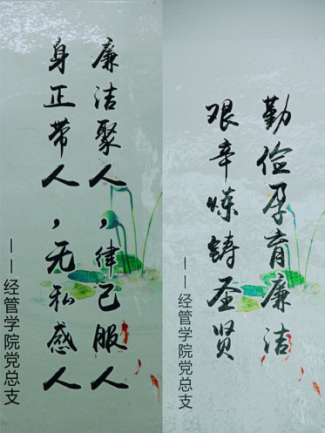 廉洁聚人，律己服人
身正带人，无私感人
——经管学院党总支
勤俭孕育廉洁
艰辛炼铸圣贤
——经管学院党总支